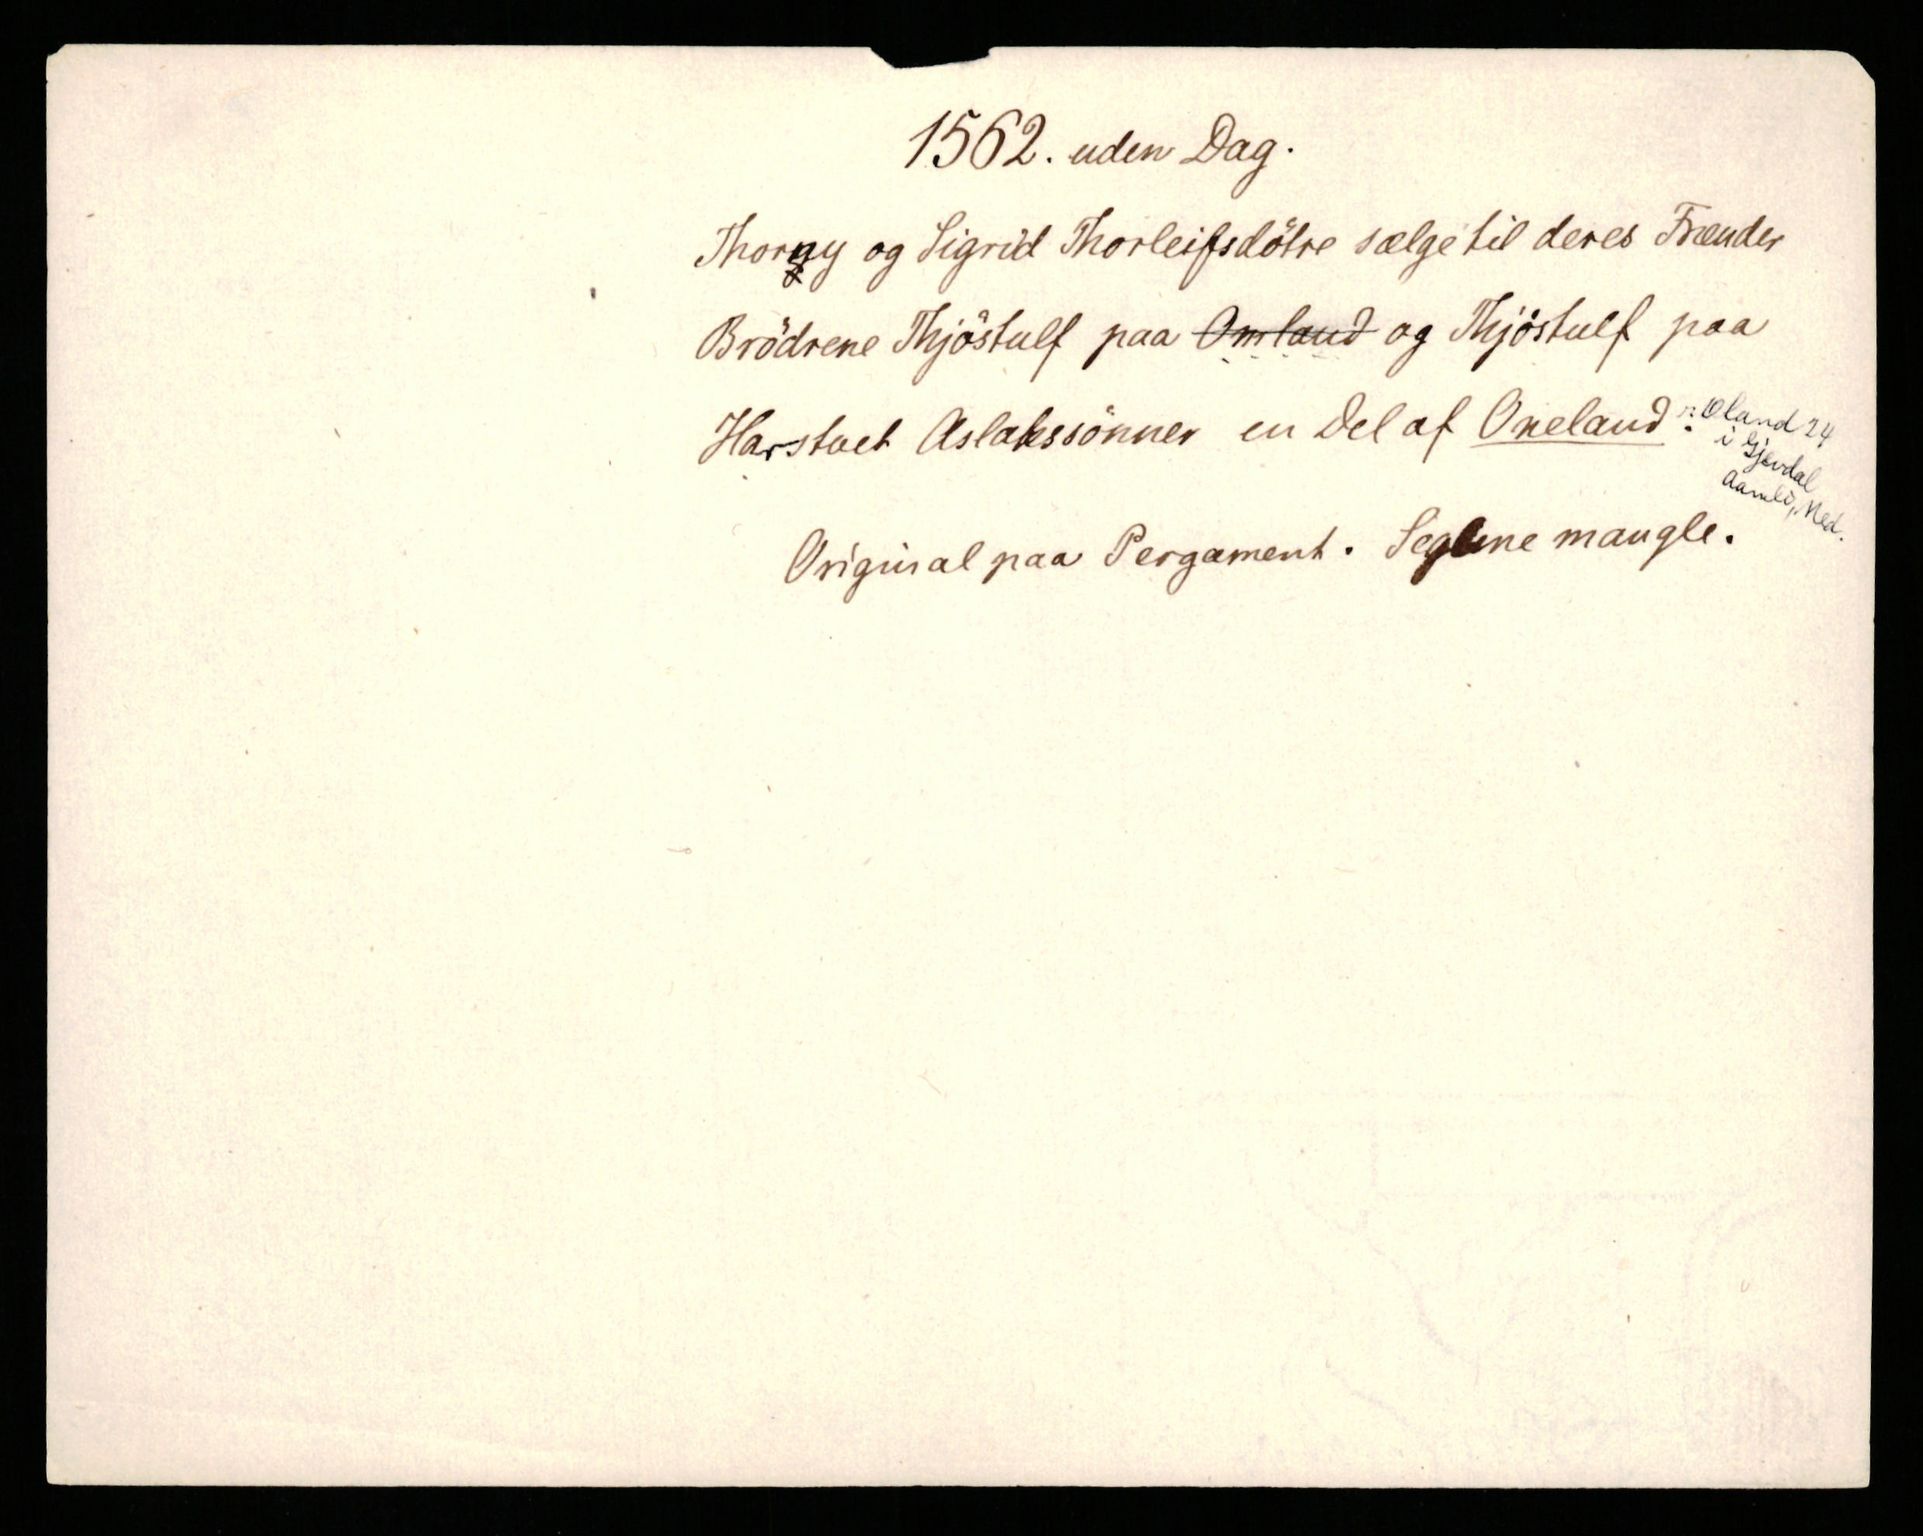 1562. uden Dag.
Thorny og Sigrid Thorleifsdötre sælge til deres Frænder
Brödrene Thjöstulf paa Omland og Thjöstulf paa
Harstvet Aslakssönner en Del af Oneland
ɔ: Öland 24
i Gjevdal
Aamli, Ned.
Original paa Pergament. Seglene mangle.